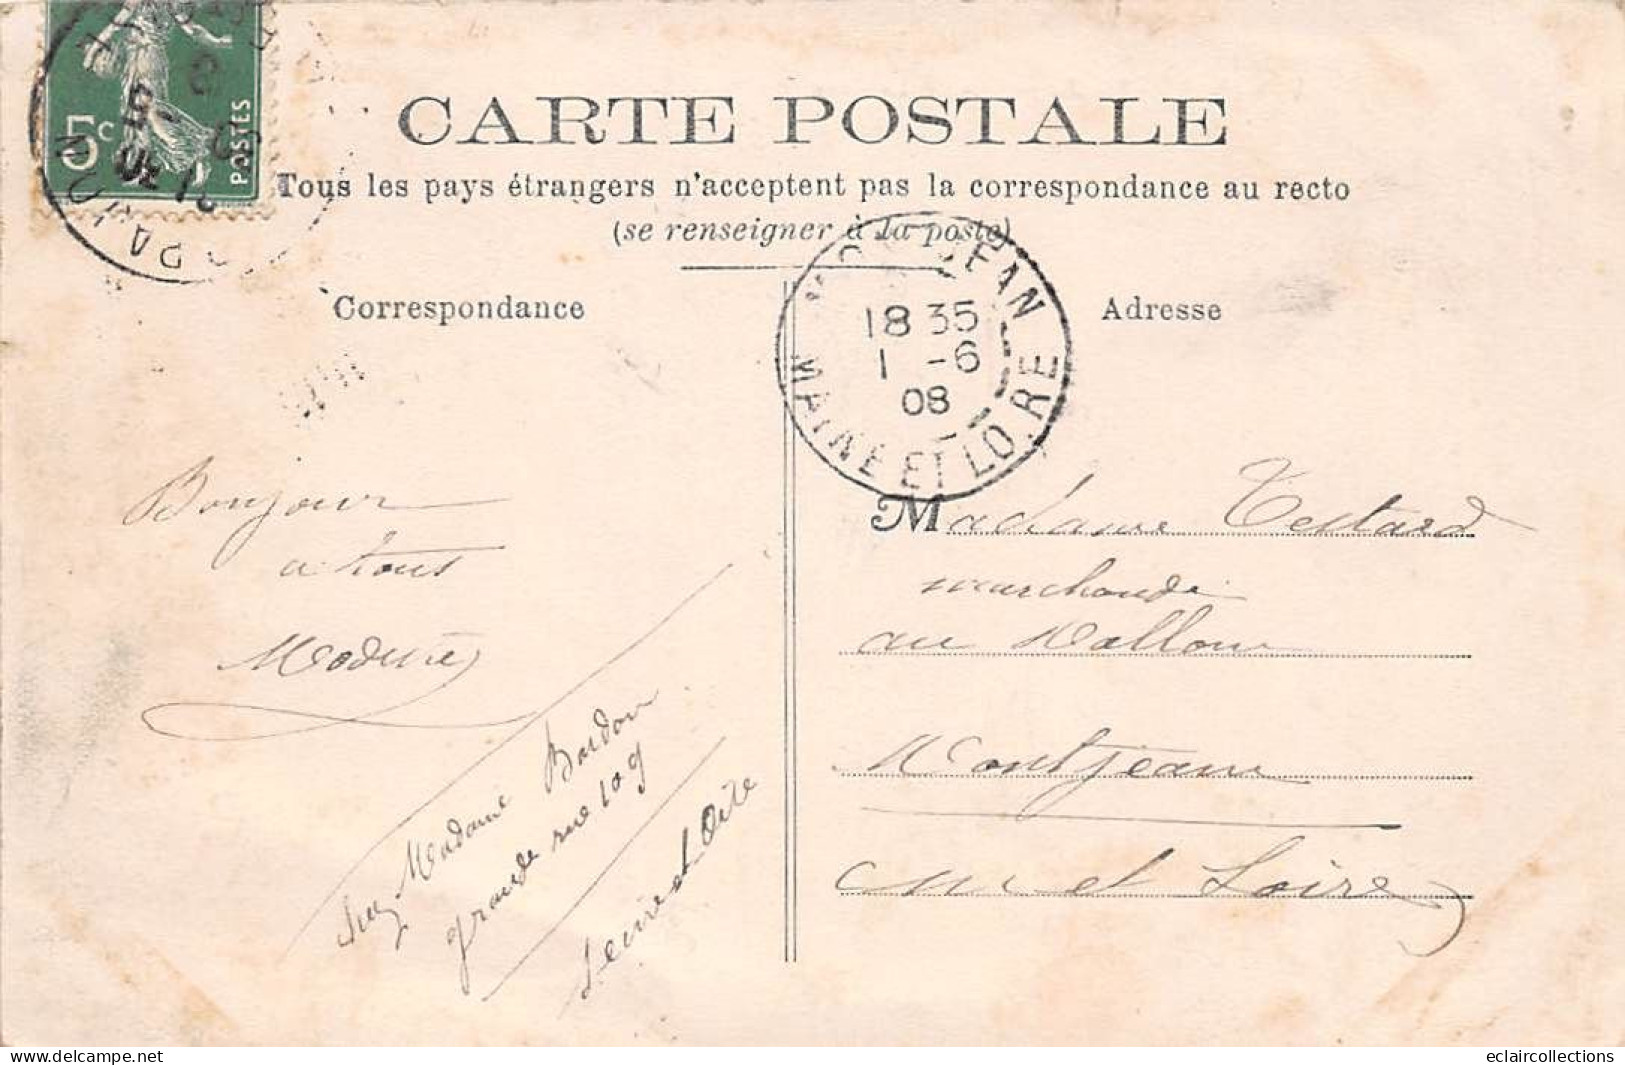 5c
POSTES
CARTE POSTALE
Tous les pays étrangers n'acceptent pas la correspondance au recto
(se renseigner à la poste)
Correspondance
Adresse
JEAN
18 35
1 -6
08
MAINE ET LOIRE
Bonjour
a tous
Madame Testard
marchande
au
Montjeane
et Loire
Madame Bardon
grande rue 109
Seine et Oise
eclaircollections